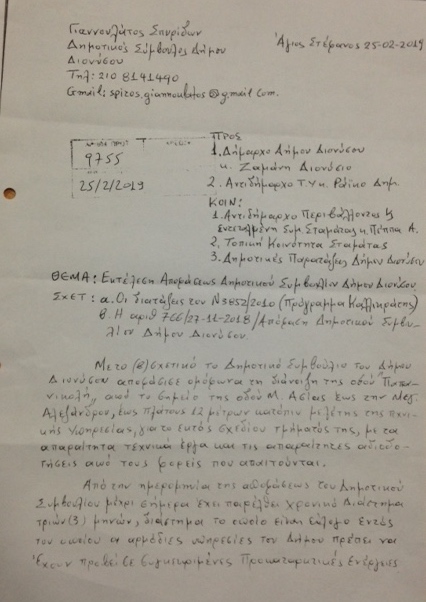 Γιαννουλάτος Σπυρίδων
Δημοτικός Σύμβουλος Δήμου
Διονύσου
Τηλ: 210 8141490
Gmail: spiros.giannoulatos@gmail.com.
Άγιος Στέφανος 25-02-2019
9755
25/2/2019
ΠΡΟΣ
1. Δήμαρχο Δήμου Διονύσου
κ. Ζαμάνη Διονύσιο
2. Αντιδήμαρχο Τ.Υ κ. Ραΐκο Δημ.
ΚΟΙΝ:
1. Αντιδήμαρχο Περιβάλλοντος &
εντεταλμένη Συμ Σταμάτας κ. Πέππα Α.
2. Τοπική Κοινότητα Σταμάτας
3. Δημοτικές Παρατάξεις Δήμου Διονύσου
ΘΕΜΑ: Εκτέλεση Αποφάσεως Δημοτικού Συμβουλίου Δήμου Διονύσου
ΣΧΕΤ: α. Οι διατάξεις του Ν3852/2010 (Πρόγραμμα Καλλικράτης)
β. Η αριθ 766/27-11-2018/Απόφαση Δημοτικού Συμβου-
λίου Δήμου Διονύσου.
Με το (β) σχετικό το Δημοτικό Συμβούλιο του Δήμου
Διονύσου αποφάσισε ομόφωνα τη διάνοιξη της οδού
από το σημείο της οδού Μ. Ασίας έως την Μεγ.
Αλεξάνδρου, έως πλάτους 12 μέτρων κατόπιν μελέτης της τεχνι-
κής Υπηρεσίας, για το εντός σχεδίου τμήματός της, με τα
απαραίτητα τεχνικά έργα και τις απαραίτητες αδειοδο-
τήσεις από τους φορείς που απαιτούνται.
Από την ημερομηνία της αποφάσεως του Δημοτικού
Συμβουλίου μέχρι σήμερα έχει παρέλθει χρονικό Διάστημα
τριών (3) μηνών, διάστημα το οποίο είναι εύλογο εντός
του οποίου οι αρμόδιες υπηρεσίες του Δήμου πρέπει να
έχουν προβεί σε συγκεκριμένες Προκαταρκτικές Ενέργειες